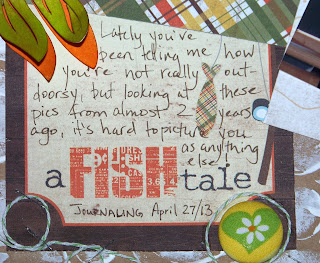 Lately you've
been telling me how
you're not really out-
doorsy, but looking at these
pics from almost 2 years
ago, it's hard to picture you
as anything
else.
a FISH tale
JOURNALING April 27/13